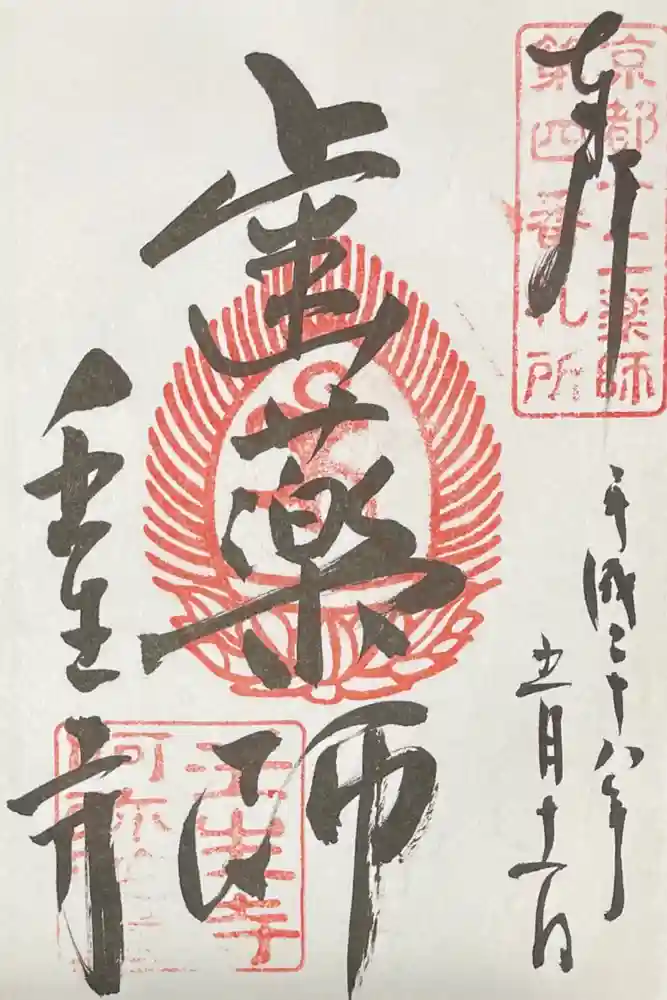 奉拝
京都十二薬師
第四番札所
平成二十八年
五月十一日
歯薬師
壬生寺
壬生寺
阿弥